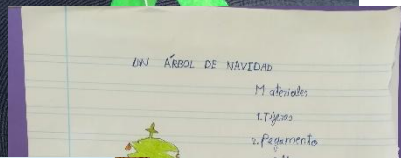 UN ÁRBOL DE NAVIDAD
Materiales
1. Tijeras
2. Pegamento